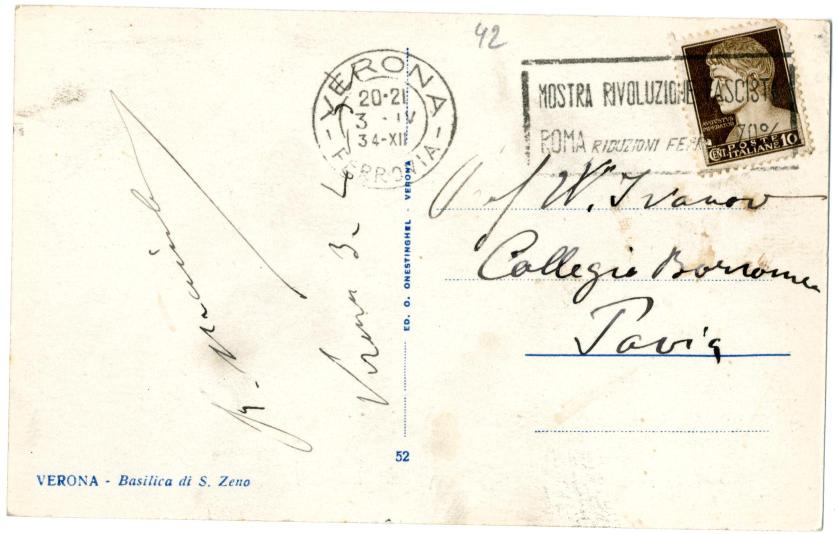 42
VERONA
20-21
3 - IV
34-XII
FERROVIA
MOSTRA RIVOLUZIONE FASCIST
ROMA RIDUZIONI FERR 70%
AUGUSTUS
CENT. POSTE 10
ITALIANE
Prof W. Ivanov
Collegio Borromeo
Pavia
Verona 3-4
G.
ED. O. ONESTINGHEL - VERONA
52
VERONA - Basilica di S. Zeno